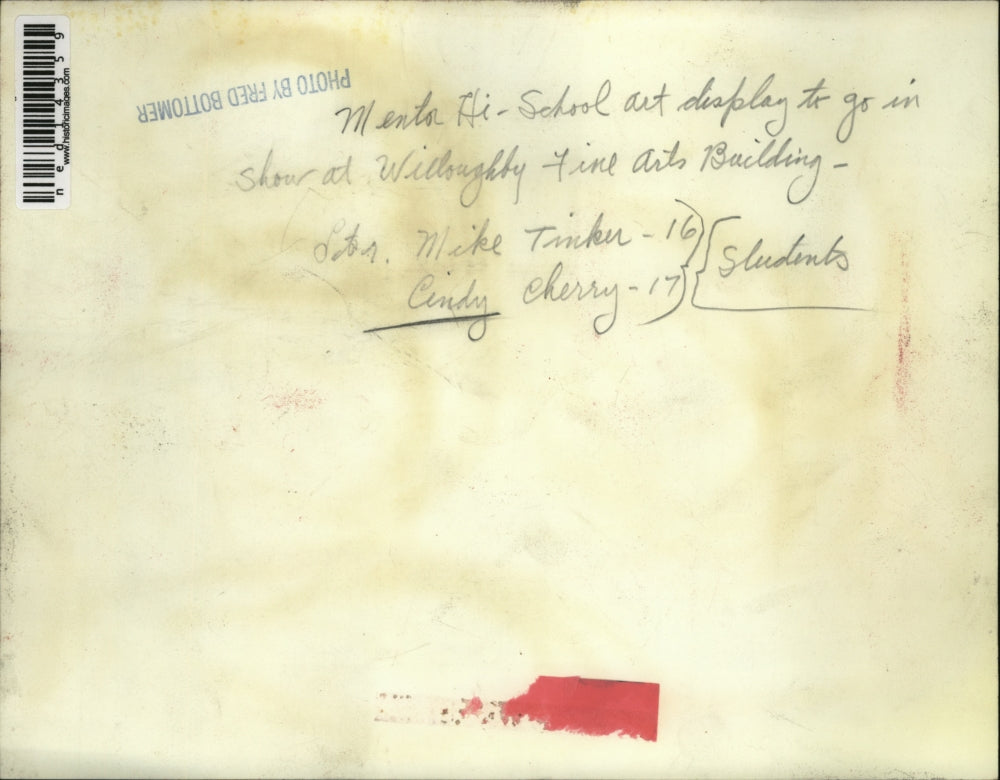 ned14359
www.historicimages.com
PHOTO BY FRED BOTTOMER
Mentor Hi-School art display to go in
show at Willoughby Fine Arts Building -
Mike Tinker - 16
Cindy Cherry - 17
Students